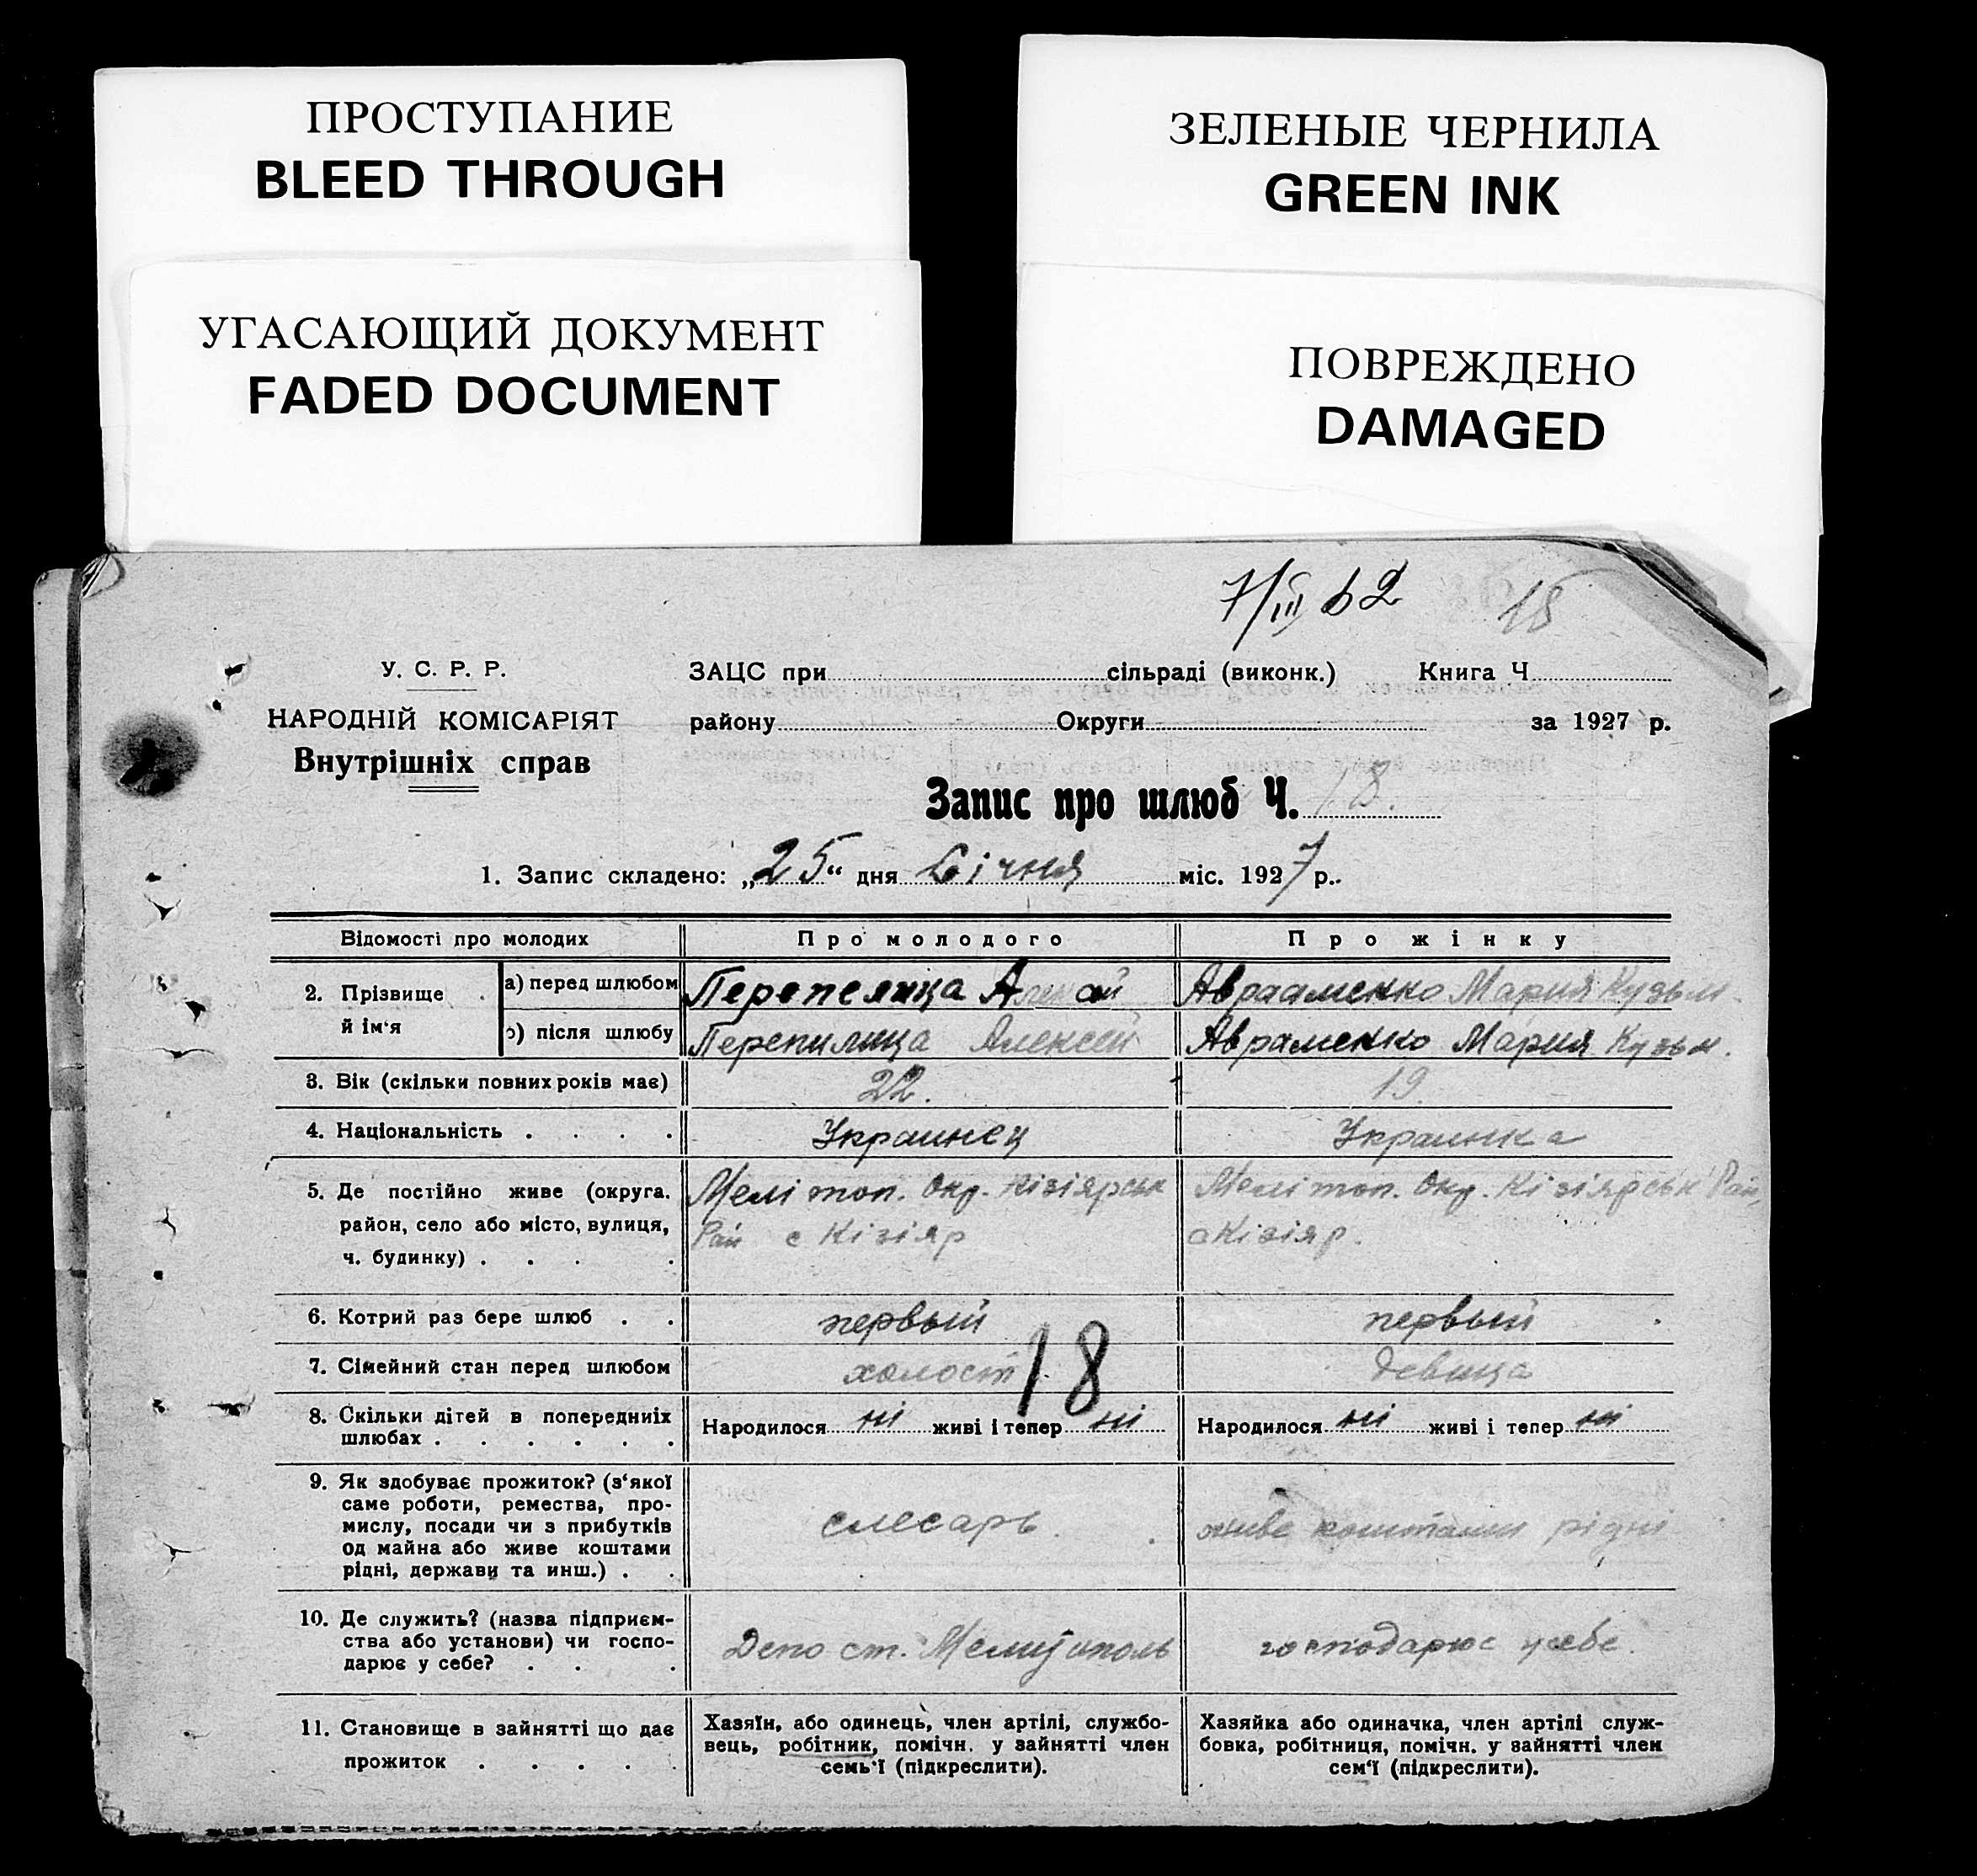 ПРОСТУПАНИЕ
BLEED THROUGH
ЗЕЛЕНЫЕ ЧЕРНИЛА
GREEN INK
УГАСАЮЩИЙ ДОКУМЕНТ
FADED DOCUMENT
ПОВРЕЖДЕНО
DAMAGED
7/III 62 18
У. С. Р. Р.
НАРОДНІЙ КОМІСАРІЯТ
Внутрішніх справ
ЗАЦС при сільраді (виконк.) Книга Ч
району Округи за 1927 р.
Запис про шлюб Ч. 18.
1. Запис складено: „25“ дня Січня міс. 1927 р.
Відомості про молодих Про молодого Про жінку
2. Прізвище й ім‘я
а) перед шлюбом Перепелица Алексей Авраменко Мария Кузьм.
б) після шлюбу Перепилица Алексей Авраменко Мария Кузьм.
3. Вік (скільки повних років має) 22. 19.
4. Національність . . . . Украинец Украинка
5. Де постійно живе (округа.
район, село або місто, вулиця,
ч. будинку) . . . .
Мелітоп. Окр. Кізіярськ
Рай с Кізіяр
Мелітоп. Окр. Кізіярськ Рай,
с Кізіяр.
6. Котрий раз бере шлюб . . первый первый
7. Сімейний стан перед шлюбом холост девица
18
8. Скільки дітей в попередниіх
шлюбах . . . . . .
Народилося ні живі і тепер ні
Народилося ні живі і тепер ні
9. Як здобуває прожиток? (з‘якої
саме роботи, ремества, про-
мислу, посади чи з прибутків
од майна або живе коштами
рідні, держави та инш.) . .
слесарь.
живе коштами рідні
10. Де служить? (назва підприєм-
ства або установи) чи госпо-
дарює у себе? . . .
Депо ст. Мелитополь
господарює у себе.
11. Становище в зайнятті що дає
прожиток . . . . .
Хазяїн, або одинець, член артілі, службо-
вець, робітник, помічн. у зайнятті член
семь‘ї (підкреслити).
Хазяйка або одиначка, член артілі служ-
бовка, робітниця, помічн. у зайнятті член
сем‘ї (підкреслити).